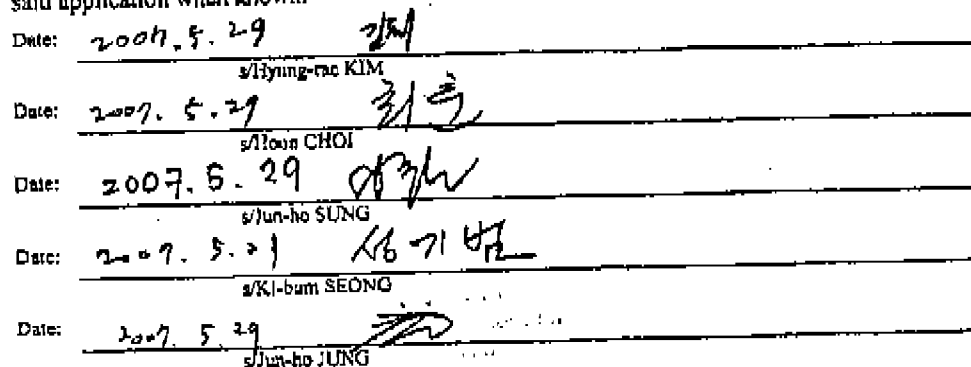 said application when known.
Date: 2007. 5. 29
s/Hyung-rae KIM
Date: 2007. 5. 29 최훈
s/Hoon CHOI
Date: 2007. 5. 29
s/Jun-ho SUNG
Date: 2007. 5. 29 성기범
s/Ki-bum SEONG
Date: 2007. 5 29
s/Jun-ho JUNG